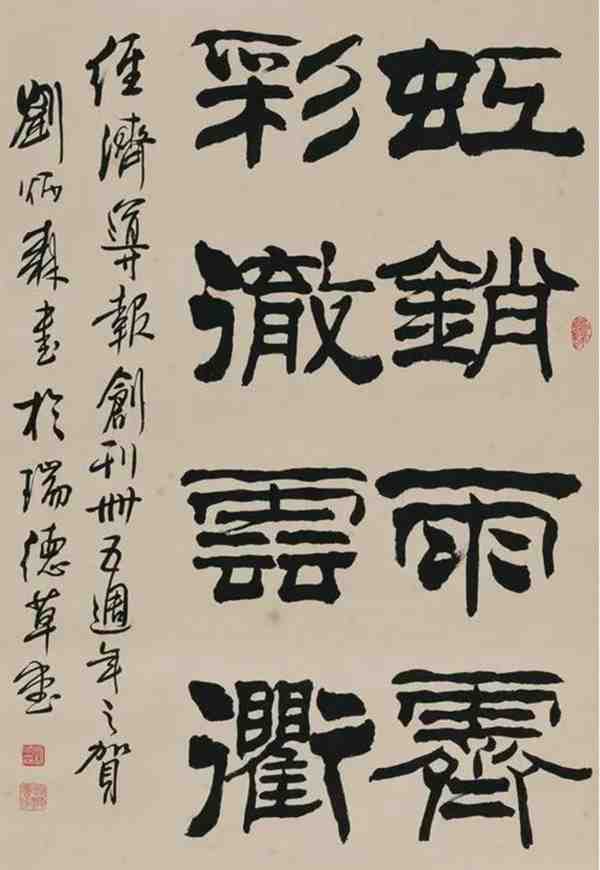 虹銷雨霽
彩徹雲衢
經濟導報創刊卌五週年之賀
劉炳森書於瑞德草堂